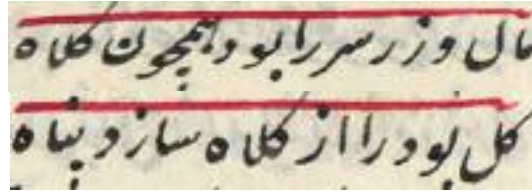 مال و زر سر را بود همچون کلاه
کل بود را از کلاه سازد پناه